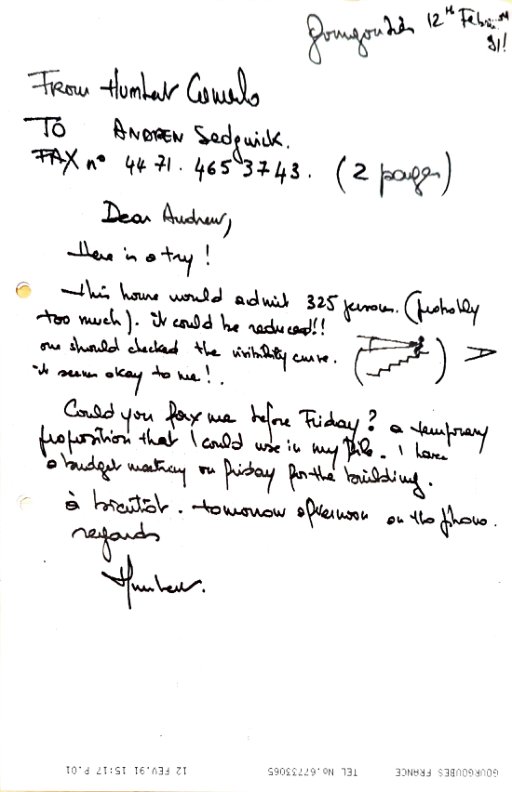 12th Feb
91!
From Humbert Camerlo
TO ANDREW Sedgwick.
FAX n° 44 71. 465 3743. (2 pages)
Dear Andrew,
Here is a try!
This house would admit 325 persons. (probably
too much). it could be reduced!!
one should checked the visibility curve.
it seems okay to me!.
Could you fax me before Friday? a temporary
proposition that I could use in my. I have
a budget meeting on friday for the building.
à bientôt. tomorrow afternoon on the phone.
regards
Humbert.
GOURGOUBES FRANCE TEL No.67733065 12 FEV.91 15:17 P.01